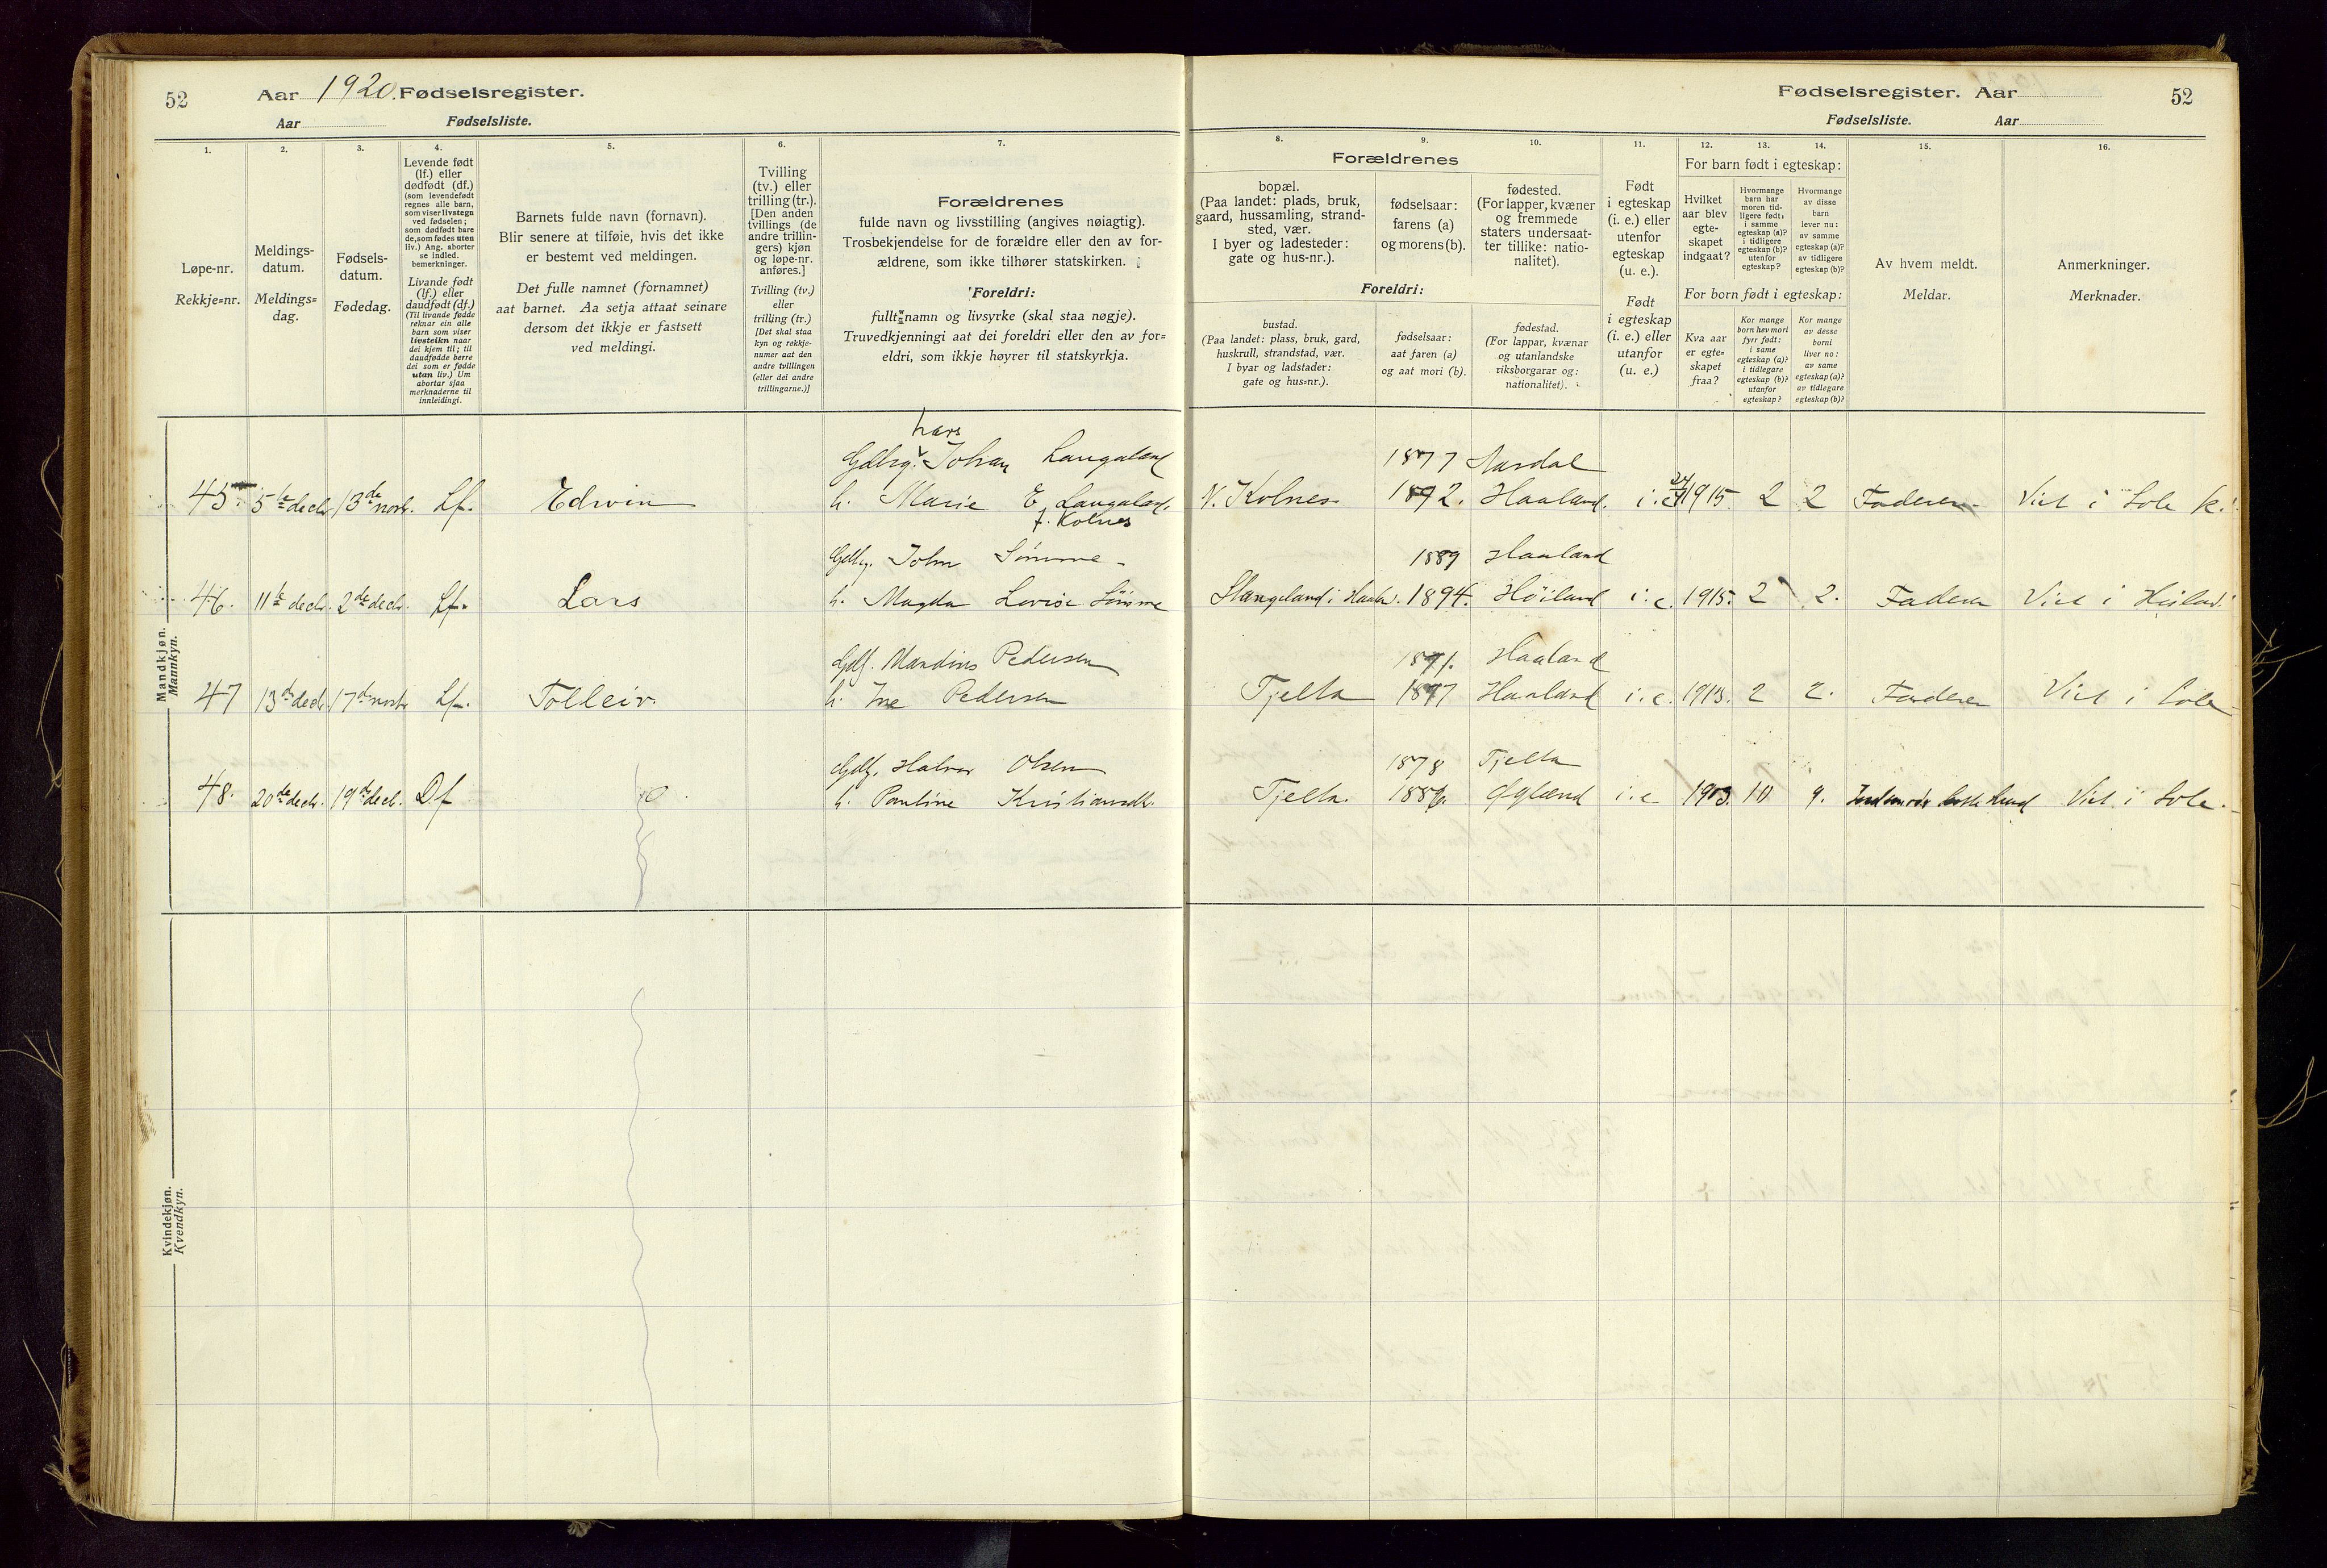 52
Aar 1920. Fødselsregister.
Aar Fødselsliste.
Fødselsregister. Aar
52
Fødselsliste. Aar
1.
2.
3.
4.
5.
6.
7.
8.
9.
10.
11.
12.
13.
14.
15.
16.
Løpe-nr.
Rekkje=nr.
Meldings-
datum.
Meldings=
dag.
Fødsels-
datum.
Fødedag.
Levende født
(lf.) eller
dødfødt (df.)
(som levendefødt
regnes alle barn,
som viser livstegn
ved fødselen;
som dødfødt bare
de, som fødes uten
liv.) Ang. aborter
se indled.
bemerkninger.
Livande født
(lf.) eller
daudfødt (df.)
(Til livande fødde
reknar ein alle
barn som viser
livsteikn naar
dei kjem til; til
daudfødde berre
dei som er fødde
utan liv.) Um
abortar sjaa
merknaderne til
innleidingi.
Barnets fulde navn (fornavn).
Blir senere at tilføie, hvis det ikke
er bestemt ved meldingen.
Det fulle namnet (fornamnet)
aat barnet. Aa setja attaat seinare
dersom det ikkje er fastsett
ved meldingi.
Tvilling
(tv.) eller
trilling (tr.).
[Den anden
tvillings (de
andre trillin-
gers) kjøn
og løpe-nr.
anføres.]
Tvilling (tv.)
eller
trilling (tr.)
[Det skal staa
kyn og rekkje-
numer aat den
andre tvillingen
(eller dei andre
trillingarne.)]
Forældrenes
fulde navn og livsstilling (angives nøiagtig).
Trosbekjendelse for de forældre eller den av for-
ældrene, som ikke tilhører statskirken.
Foreldri:
fullt namn og livsyrke (skal staa nøgje).
Truvedkjenningi aat dei foreldri eller den av for=
eldri, som ikkje høyrer til statskyrkja.
Forældrenes
bopæl.
(Paa landet: plads, bruk,
gaard, hussamling, strand-
sted, vær.
I byer og ladesteder:
gate og hus-nr.).
fødselsaar:
farens (a)
og morens (b).
fødested.
(For lapper, kvæner
og fremmede
staters undersaat-
ter tillike: natio-
nalitet).
Foreldri:
bustad.
(Paa landet: plass, bruk, gard,
huskrull, strandstad, vær.
I byar og ladstader:
gate og hus=nr.).
fødselsaar:
aat faren (a)
og aat mori (b).
fødestad.
(For lappar, kvænar
og utanlandske
riksborgarar og:
nationalitet).
Født
i egteskap
(i. e.) eller
utenfor
egteskap
(u. e.).
Født
i egteskap
(i. e.) eller
utanfor
(u. e.)
For barn født i egteskap:
Hvilket
aar blev
egte-
skapet
indgaat?
Hvormange
barn har
moren tid-
ligere født:
i samme
egteskap (a)?
i tidligere
egteskap (b)?
utenfor
egteskap?
Hvormange
av disse
barn
lever nu:
av samme
egteskap (a)?
av tidligere
egteskap (b)?
For born født i egteskap:
Kva aar
er egte=
skapet
fraa?
Kor mange
born hev mori
fyrr født:
i same
egteskap (a)?
i tidlegare
egteskap (b)?
utanfor
egteskap?
Kor mange
av desse
borni
liver no:
av same
egteskap (a)?
av tidlegare
egteskap (b)?
Av hvem meldt.
Meldar.
Anmerkninger.
Merknader.
Mandkjøn.
Mannkyn.
Lars
Gdbrg. Johan Langaland 1877 Aardal
45. 5te decbr. 13de novbr. Lf. Edwin h. Marie E. Langaland. N. Kolnes 1892. Haaland. i. e. 1915. 2 2 Faderen Viet i Sole k.
f. Kolnes
Gdbrg. John Sømme 1889 Haaland
46. 11te decbr. 2de decbr. Lf. Lars h. Magda Lovise Sømme Stangeland i Haal. 1894. Høiland i. e. 1915. 2 2. Faderen Viet i Høiland.
Gdbf. Mandius Pedersen 1891. Haaland
47 13de decbr. 17de novbr Lf. Tolleiv. h. Ine Pedersen Tjelta 1897 Haaland i. e. 1915. 2 2. Faderen Viet i Sole
Gdbf. Halvor Olsen 1878 Tjelta
48. 20de decbr. 19de decbr. Df h. Pauline Kristiansdtr. Tjelta. 1886. i. e 1903. 10 9. Viet i Sole.
Kvindekjøn.
Kvendkyn.